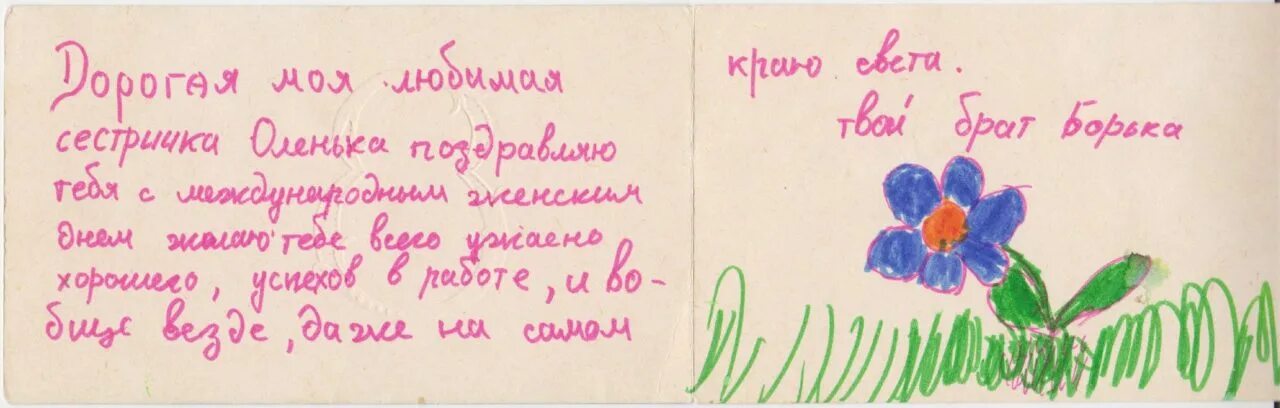 Дорогая моя любимая
сестричка Оленька поздравляю
тебя с международным женским
днем желаю тебе всего ужасно
хорошего, успехов в работе, и во-
бще везде, даже на самом
краю света.
твой брат Борька